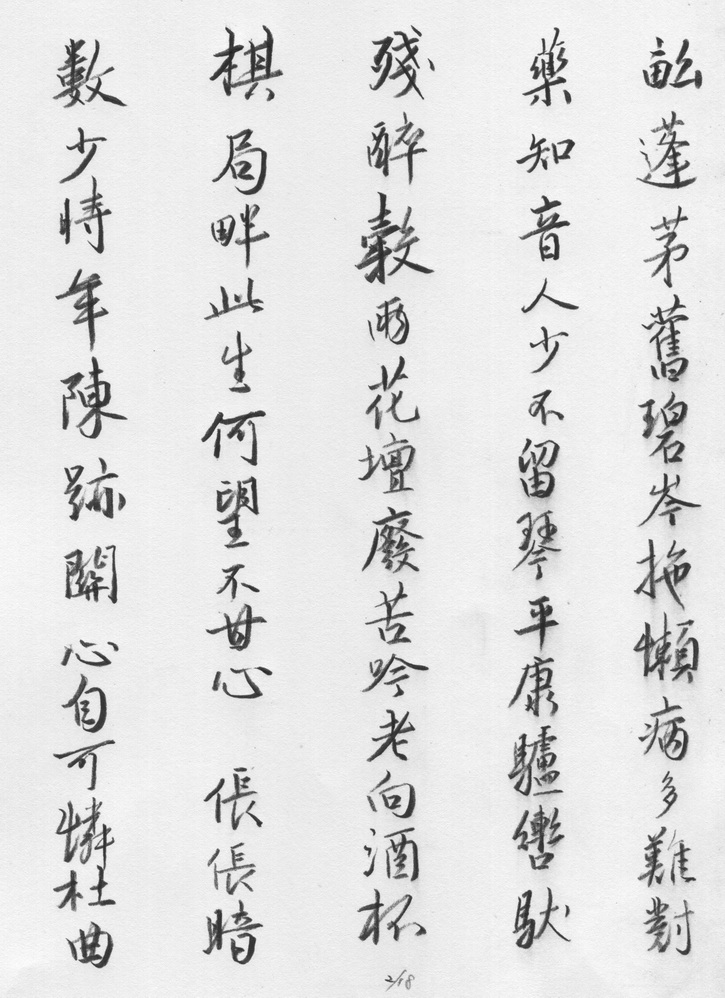 畝蓬茅舊碧岑拖懶病多難對
藥知音人少不留琴平康驢轡馱
殘醉穀雨花壇廢苦吟老向酒杯
棋局畔此生何望不甘心 倀倀暗
數少時年陳跡關心自可憐杜曲
2/18